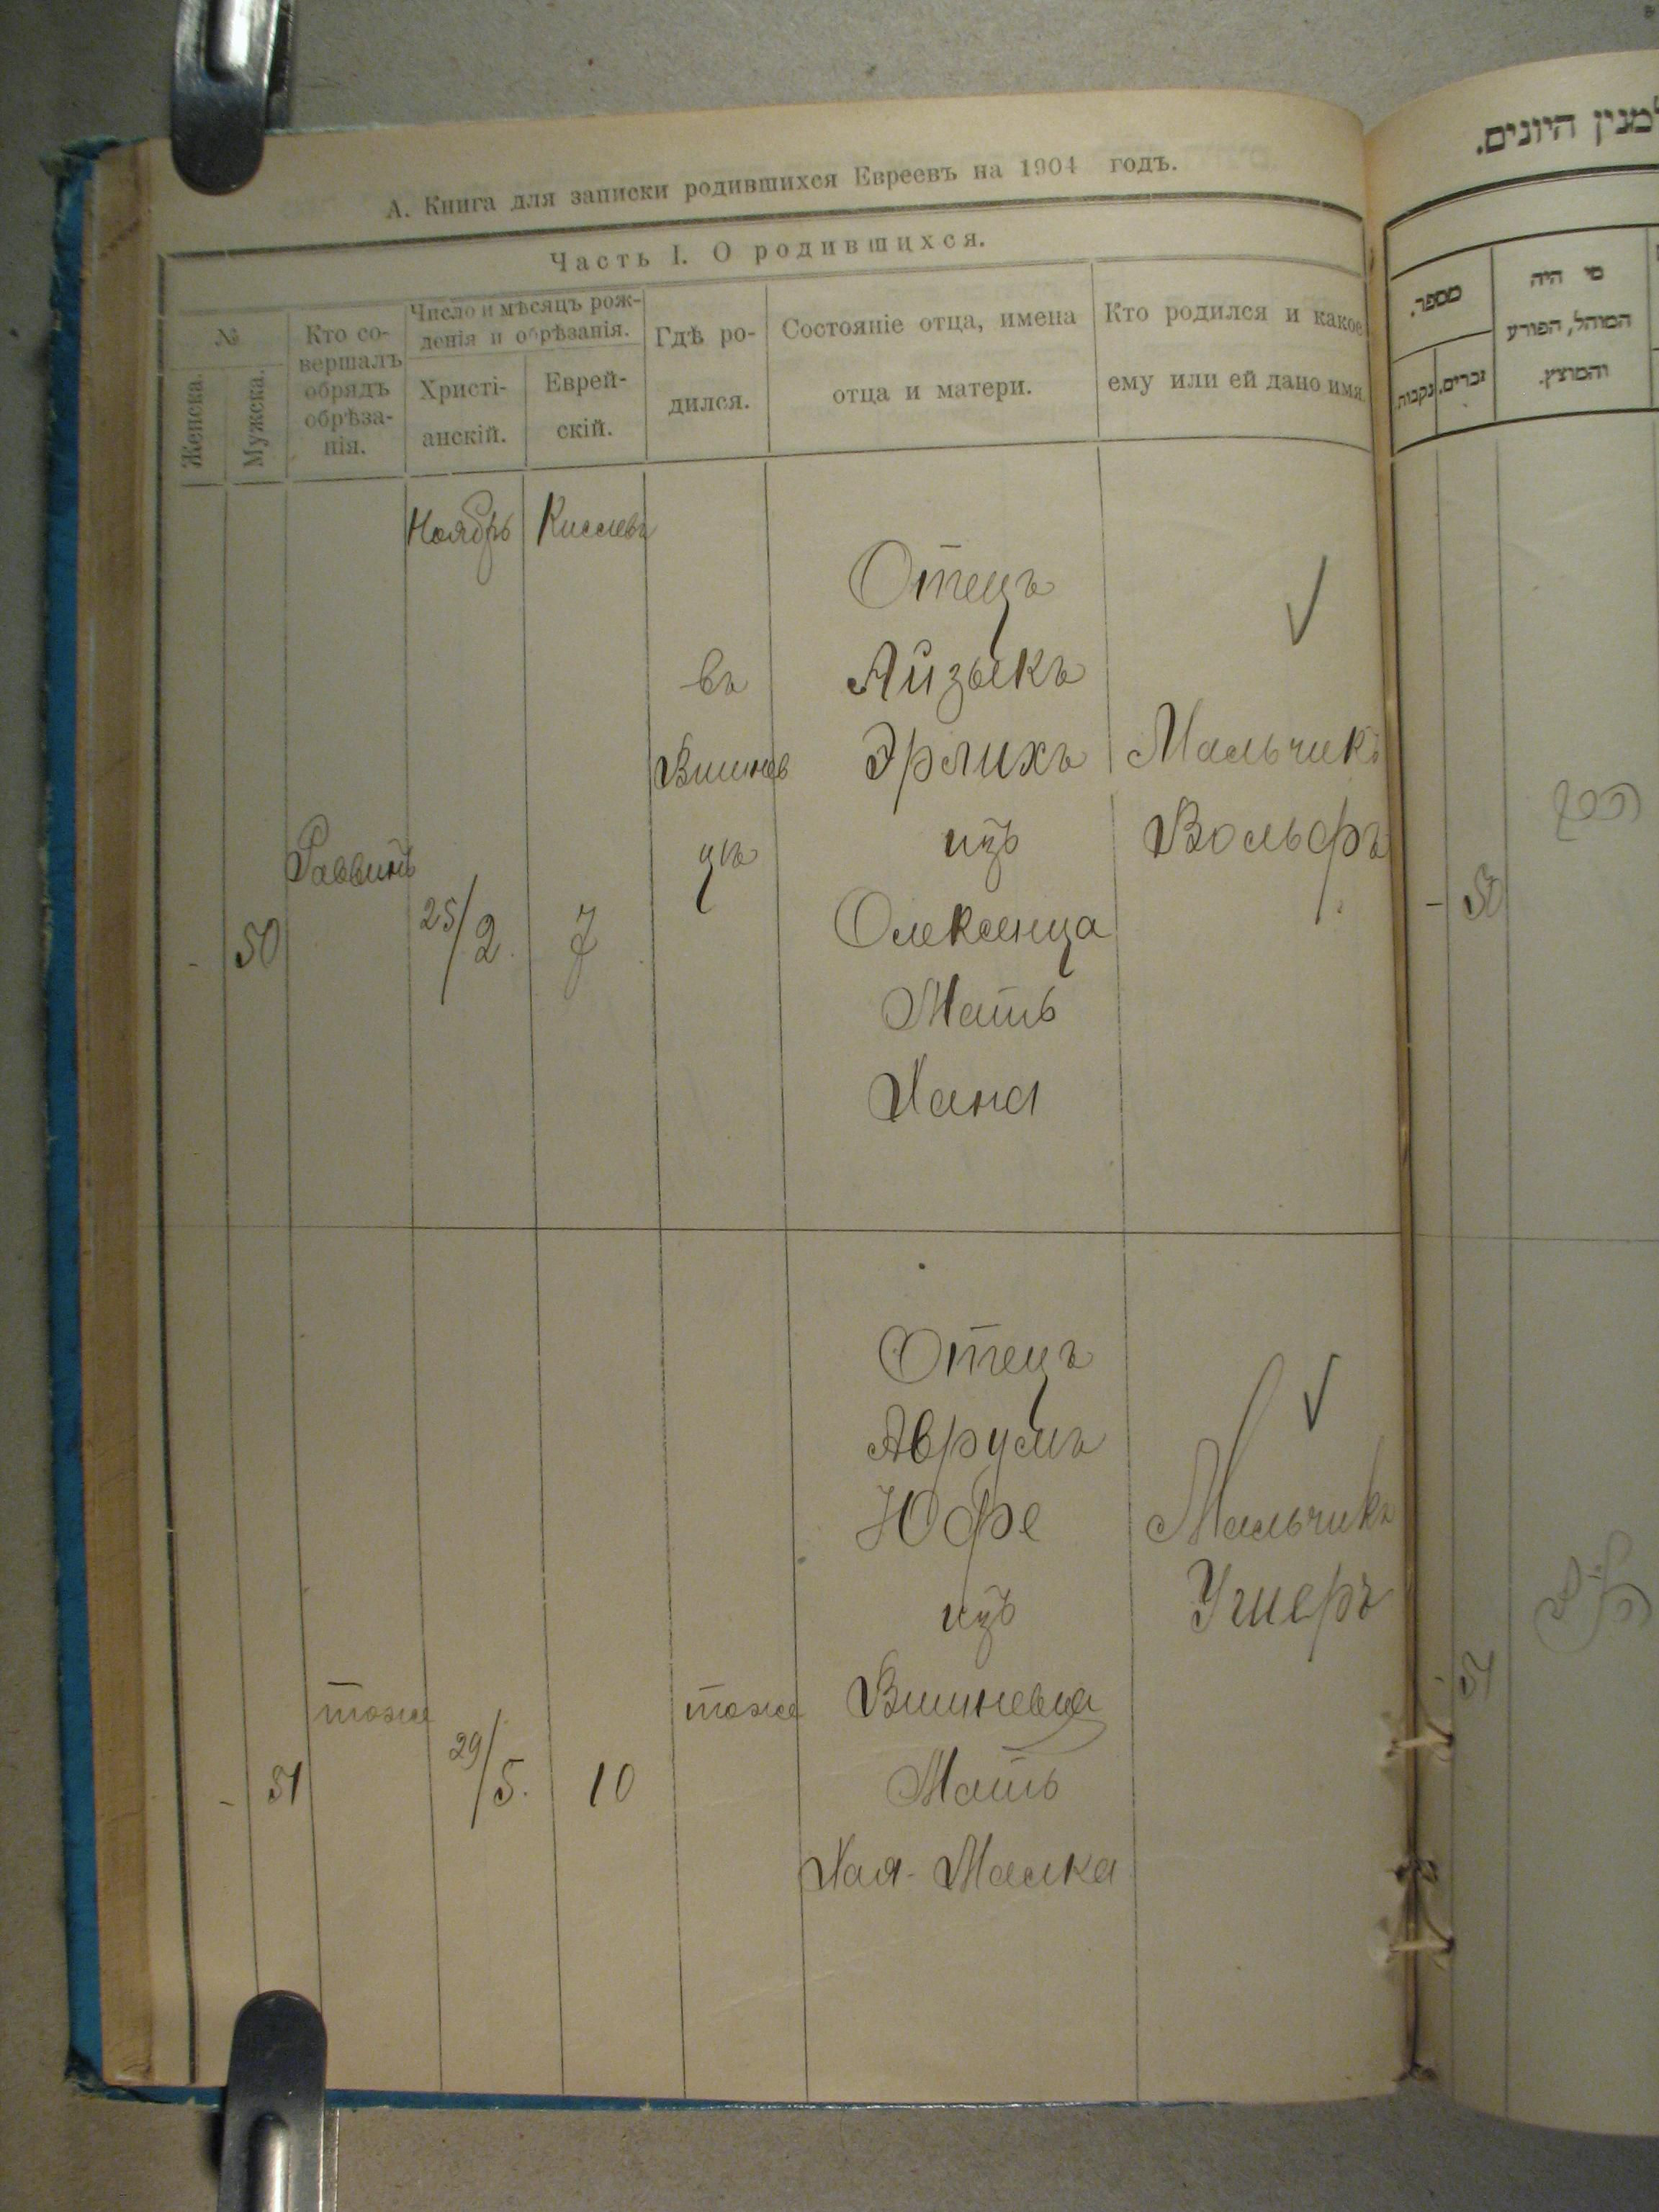 А. Книга для записки родившихся Евреевъ на 1904 годъ.
Часть I. О родившихся.
№
Женска.
Мужска.
Кто со-
вершалъ
обрядъ
обрѣза-
нія.
Число и мѣсяцъ рож-
денія и обрѣзанія.
Христі-
анскій.
Еврей-
скій.
Гдѣ ро-
дился.
Состояніе отца, имена
отца и матери.
Кто родился и какое
ему или ей дано имя.
Ноябрь
Кислевъ
- 50
Раввинъ
25/2.
7
въ
Вишнев
цѣ
Отецъ
Айзыкъ
Эрлихъ
изъ
Олексенца
Мать
Хана
Мальчикъ
Вольфъ
- 51
тоже
29/5.
10
тоже
Отецъ
Аврумъ
Юфе
изъ
Вишневца
Мать
Хая-Малка
Мальчикъ
Ушеръ
למנין היונים.
מספר.
נקבות.
זכרים.
מי היה
המוהל, הפורע
והמוצץ.
- 50
51